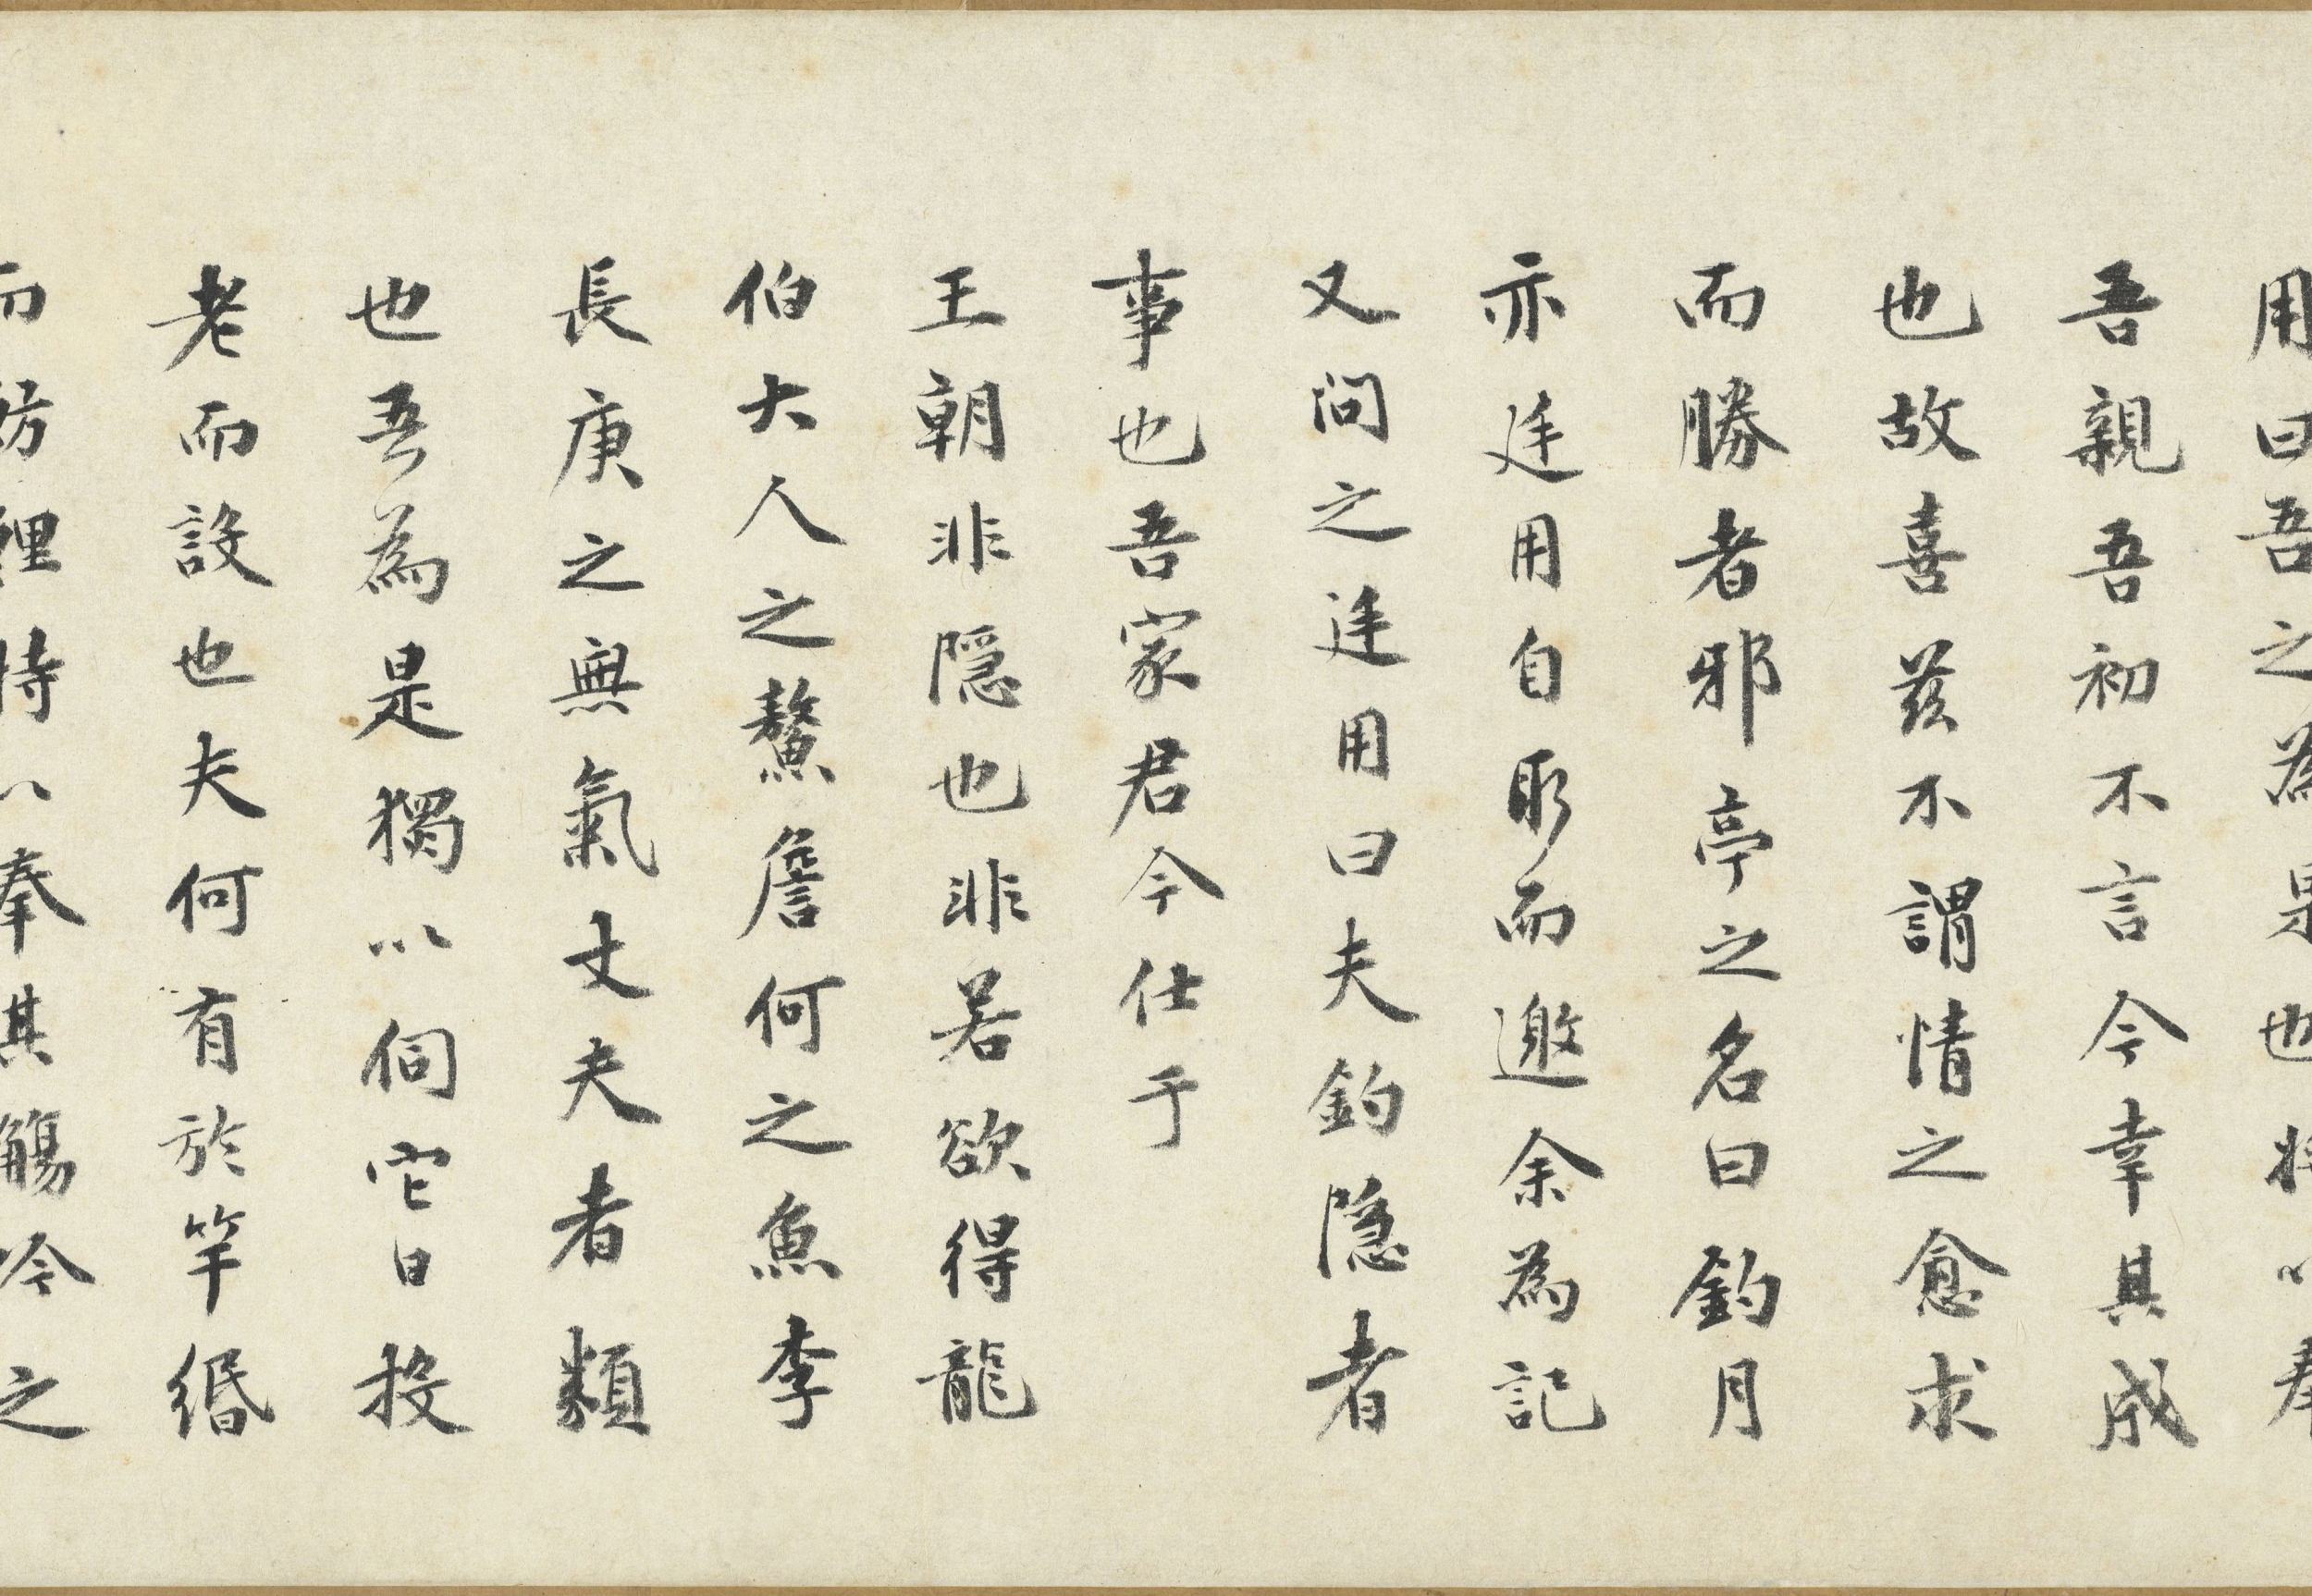 用曰吾之為是也將以奉
吾親吾初不言今幸其成
也故喜茲不謂情之愈求
而勝者邪亭之名曰釣月
亦廷用自取而邀余為記
又問之廷用曰夫釣隱者
事也吾家君今仕于
王朝非隱也非若欲得龍
伯大人之鰲詹何之魚李
長庚之無氣丈夫者類
也吾為是獨以伺它日投
老而設也夫何有於竿緡
而坊裡特以奉其觴吟之